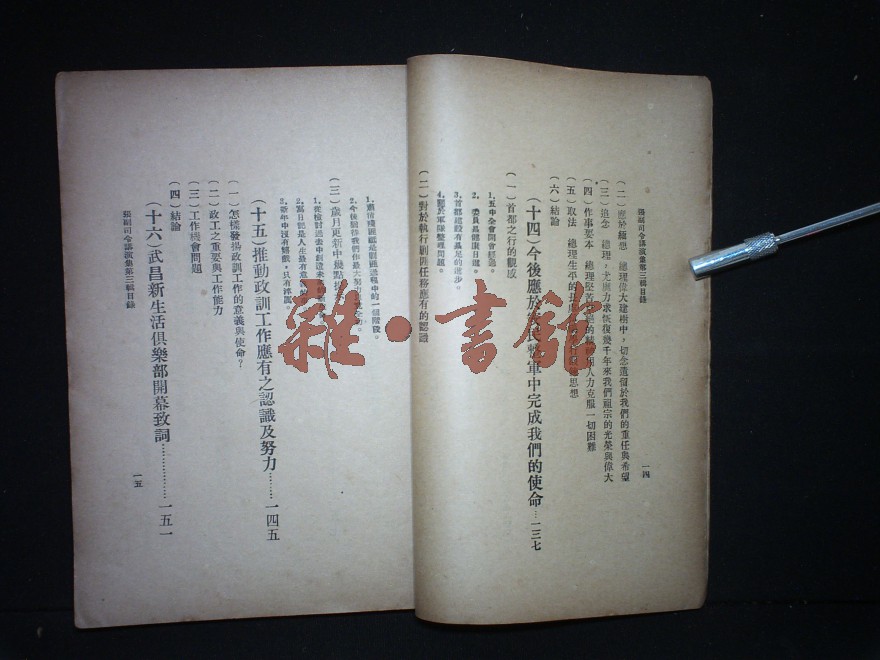 張副司令講演集第三輯目錄
一四
(二)應於緬想 總理偉大建樹中,切念遺留於我們的重任與希望
(三)追念 總理,尤應力求恢復幾千年來我們祖宗的光榮與偉大
(四)作事要本 總理堅苦 人力克服一切困難
(五)取法 總理生平的 思想
(六)結論
(十四)今後應於 民 軍中完成我們的使命…一三七
(一)首都之行的觀感
1.五中全會開會經過。
2. 委員長健康日進。
3.首都建設有長足的進步。
4.關於軍隊整理問題。
(二)對於執行剿匪任務應有的認識
1.肅清殘匪 是剿匪過程中的一個階段。
2.今後 我們作最大努力
(三)歲月更新中幾點
1.從檢討過去中創造未來
2.寫日記是人生最有意
3.新年中沒有 ,只有
(十五)推動政訓工作應有之認識及努力………一四五
(一)怎樣發揚政訓工作的意義與使命?
(二)政工之重要與工作能力
(三)工作機會問題
(四)結論
(十六)武昌新生活俱樂部開幕致詞……………一五一
張副司令講演集第三輯目錄
一五
雜·書館